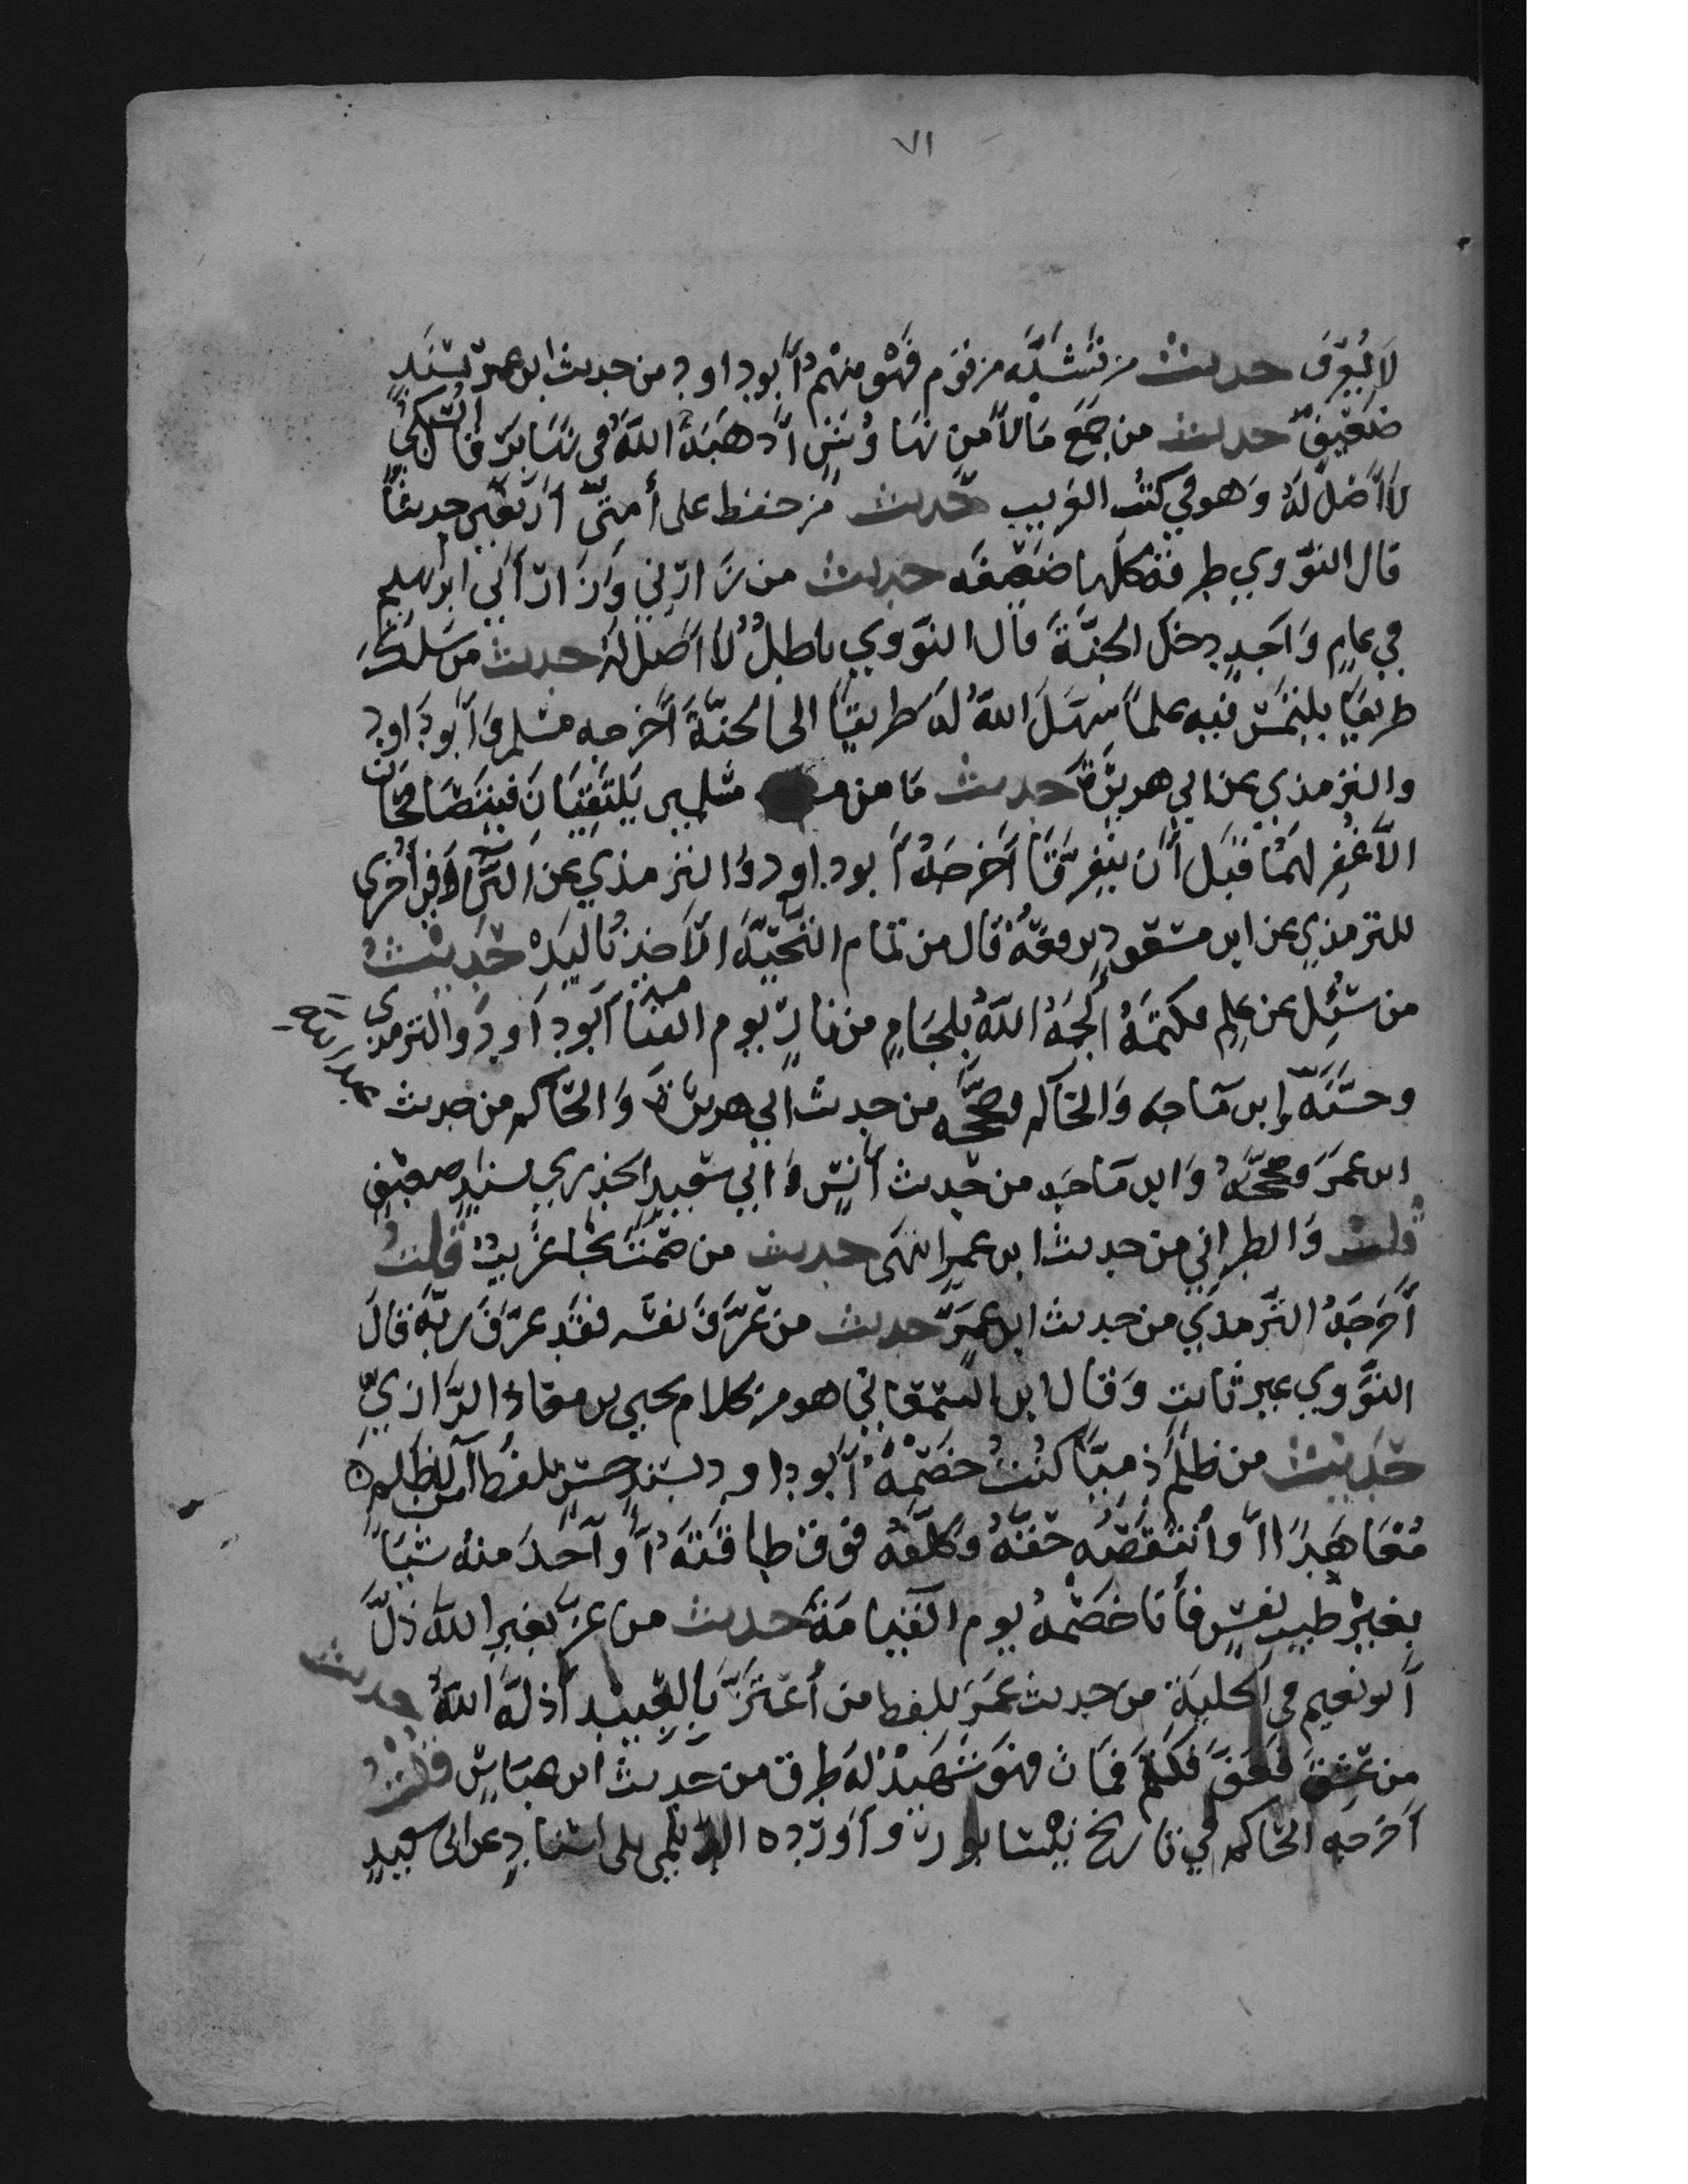 ٧١
لا يعرف حديث من تشبه من قوم فهو منهم أبو داود من حديث ابن عمر بسند
ضعيف حديث من جمع مالا من نهاوش أذهبه الله في نهابر قال السبكي
لا أصل له وهو في كتب الغريب حديث من حفظ على أمتي أربعين حديثا
قال النووي طرقه كلها ضعيفه حديث من زارني وزار أبي ابراهيم
في عام واحد دخل الجنة قال النووي باطل لا أصل له حديث من سلك
طريقا يلتمس فيه علما سهل الله له طريقا الى الجنة أخرجه مسلم وأبو داود
والترمذي عن ابي هريرة حديث ما من مسلمين يلتقيان فيتصافحان
الا غفر لهما قبل أن يتفرقا أخرجه أبو داود والترمذي عن البرآ وفي أخرى
للترمذي عن ابن مسعود يرفعه قال من تمام التحية الأخذ باليد حديث
من سئل عن علم فكتمه ألجمه الله بلجام من نار يوم القيامة أبو داود والترمذي
وحسنه وابن ماجه والحاكم وصححه من حديث أبي هريرة والحاكم من حديث
ابن عمر وصححه وابن ماجه من حديث أنس وابي سعيد الخدري بسند ضعيف
قلت والطبراني من حديث ابن عمر انتهى حديث من صمت نجا غريب قلت
أخرجه الترمذي من حديث ابن عمر حديث من عرف نفسه فقد عرف ربه قال
النووي غير ثابت وقال ابن السمعاني هو من كلام يحيي بن معاذ الرازي
حديث من ظلم ذميا كنت خصمه أبو داود بسند حسن بلفظ الا من ظلم
معاهدا أو أنتقصه حقه وكلفه فوق طاقته أو أخذ منه شيا
بغير طيب نفس فأنا خصمه يوم القيامة حديث من عز بغير الله ذل
أبو نعيم في الحلية من حديث عمر بلفظ من أعتز بالعبيد أذله الله حديث
من عشق فعف فكتم فمات فهو شهيد له طرق من حديث ابن عباس قلت
أخرجه الحاكم في تاريخ نيسابور وأورده الديلمي بلا اسناد عن ابى سعيد